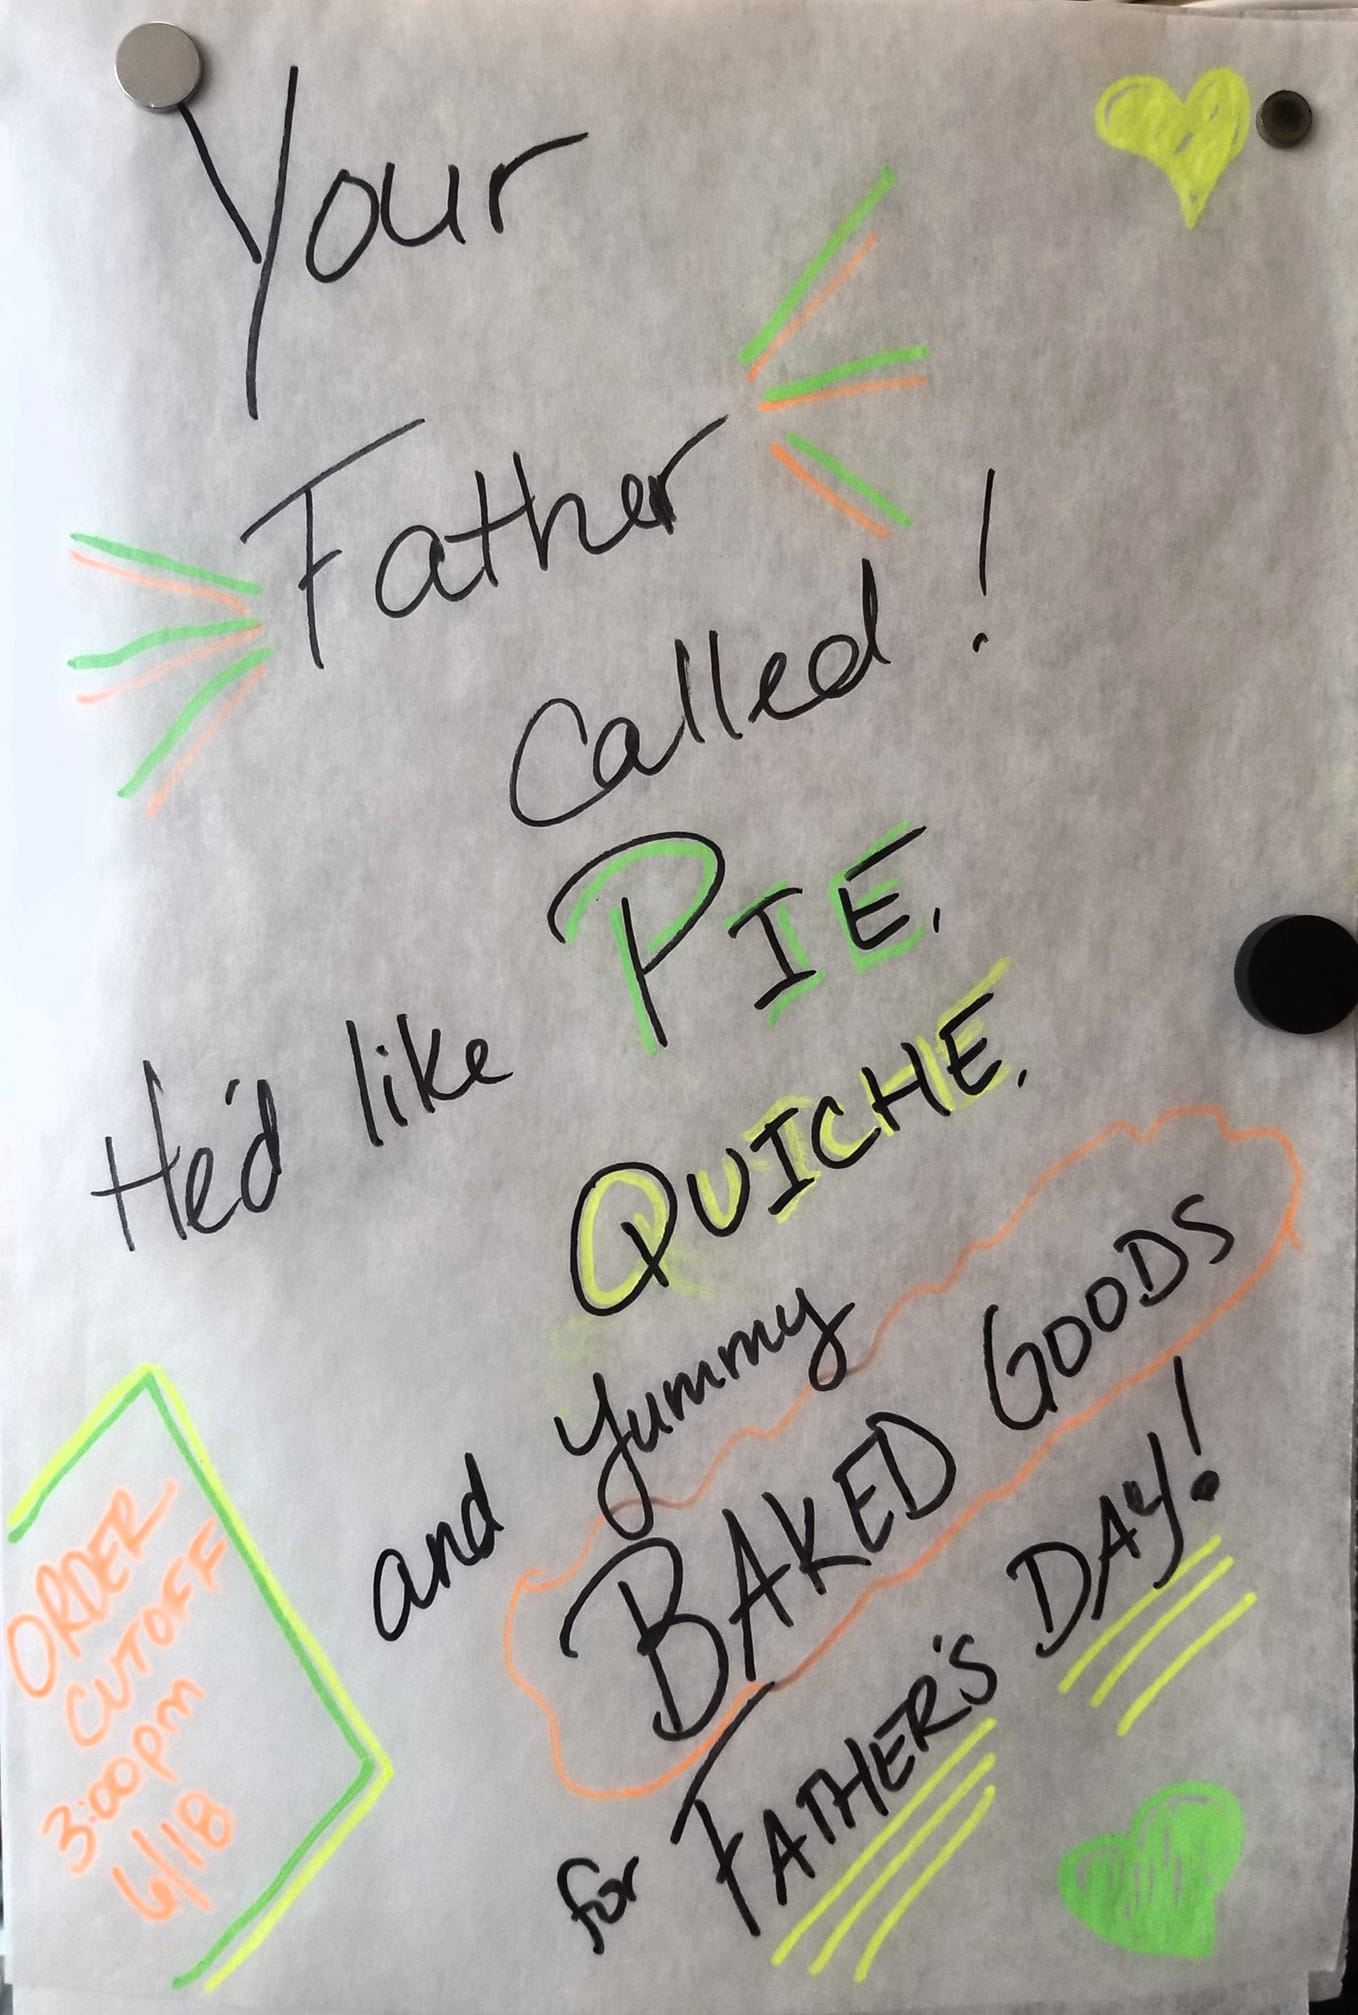 Your
Father
Called!
He'd like PIE.
QUICHE.
and yummy
BAKED GOODS
for FATHER'S DAY!
ORDER
CUTOFF
3:00pm
6/18